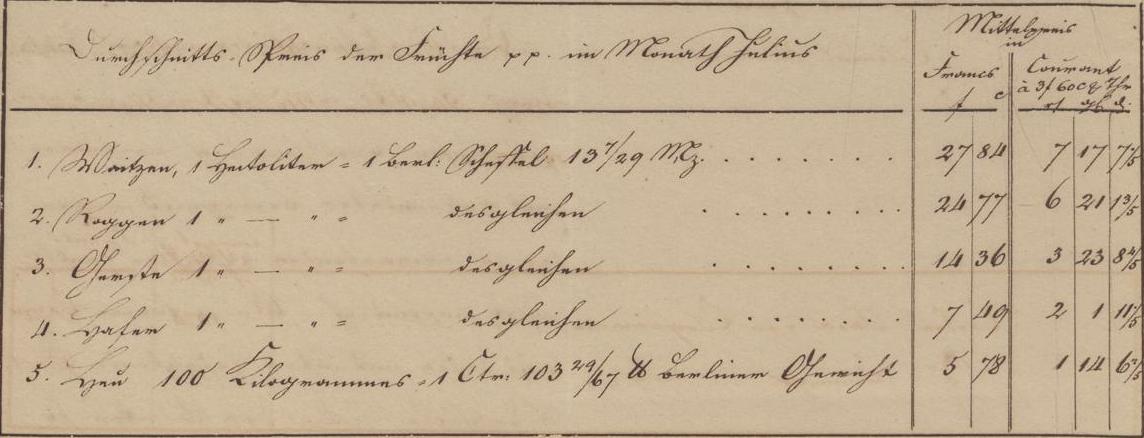 Durchschnitts-Preis der Früchte pp. im Monath Julius
Mittelpreis
in
Francs
Courant
à 3f 60c ℔ Thr
f c
rt gl d.
1. Waitzen, 1 Hectoliter = 1 berl: Scheffel 13 7/29 Mz. . . . . . . . . 27 84 7 17 7 1/5
2. Roggen 1 " — " = desgleichen . . . . . . . . . 24 77 6 21 1 3/5
3. Gerste 1 " — " = desgleichen . . . . . . . . . 14 36 3 23 8 4/5
4. Hafer 1 " — " = desgleichen . . . . . . . . 7 49 2 1 11 1/5
5. Heu 100 Kilogrammes = 1 Ctr: 103 /67 ℔ berliner Gewicht 5 78 1 14 6 2/5